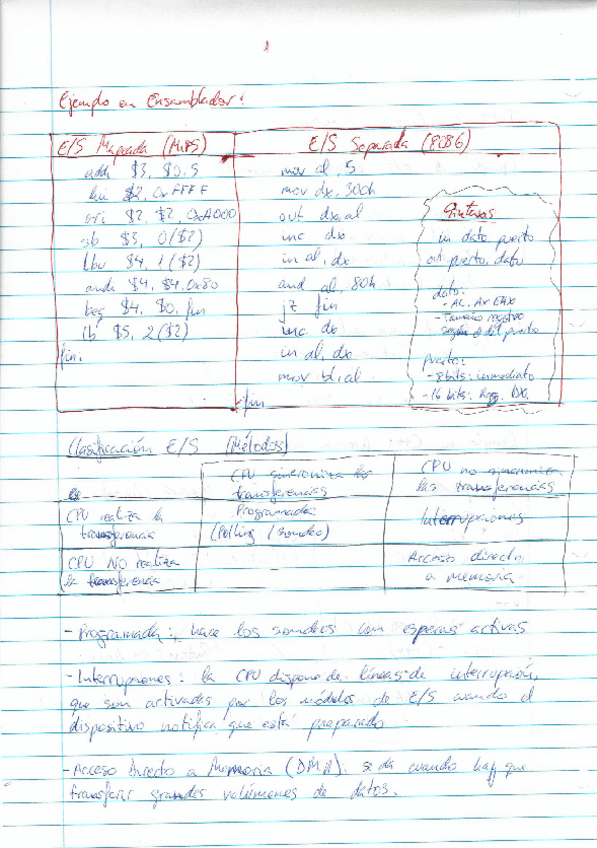 1
Ejemplo en Ensamblador:
E/S Mapeada (MIPS)
addi $3, $0, 5
lui $2, 0xFFFF
ori $2, $2, 0xA000
sb $3, 0($2)
lbu $4, 1($2)
andi $4, $4, 0x80
beq $4, $0, fin
lb $5, 2($2)
fin:
E/S Separada (8086)
mov al, 5
mov dx, 300h
out dx, al
inc dx
in al, dx
and al, 80h
jz fin
inc dx
in al, dx
mov bl, al
fin
Sintaxis
in dato puerto
out puerto, dato
dato:
- AL, AX EAX
- Tamaño registro
según el del puerto
puerto:
- 8bits: inmediato
- 16 bits: Reg. DX.
Clasificación E/S (Métodos)
CPU sincroniza las
transferencias
CPU no sincroniza
las transferencias
CPU realiza la
transferencia
Programada:
(Polling / sondeo)
Interrupciones
CPU NO realiza
la transferencia
Acceso directo
a memoria
- Programada: hace los sondeos con esperas activas
- Interrupciones: la CPU dispone de líneas de interrupción,
que son activadas por los módulos de E/S cuando el
dispositivo notifica que está preparado
- Acceso Directo a Memoria (DMA). se da cuando hay que
transferir grandes volúmenes de datos.